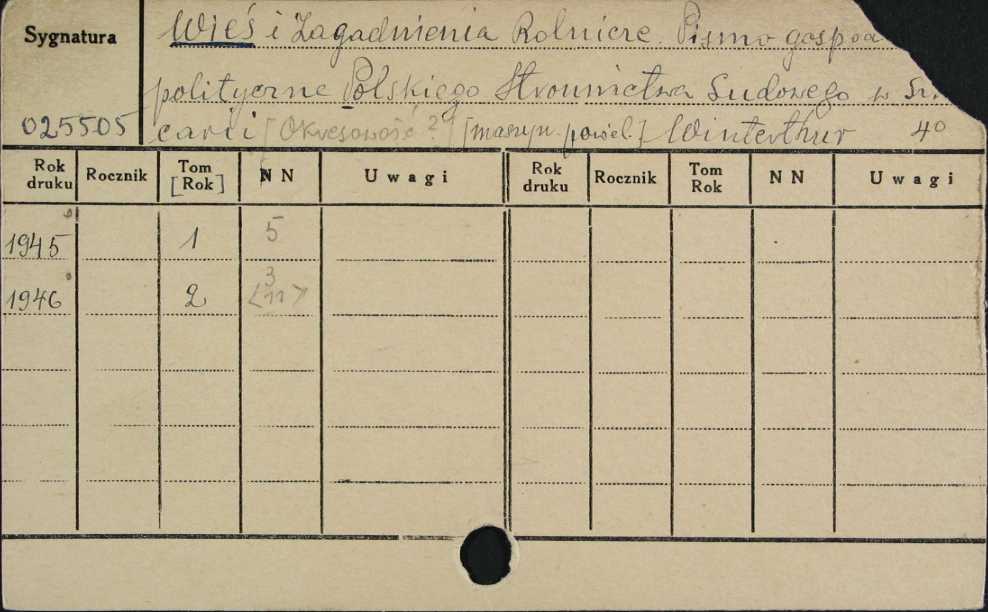 Sygnatura
Wieś i Zagadnienia Rolnicze. Pismo gospoda
polityczne Polskiego Stronnictwa Ludowego w Sz.
025505 carii [Okresowość?] [maszyn. powiel.] Winterthur 4°
Rok druku Rocznik Tom [Rok] NN Uwagi Rok druku Rocznik Tom Rok NN Uwagi
1945 1 5
1946 2 3 <11>